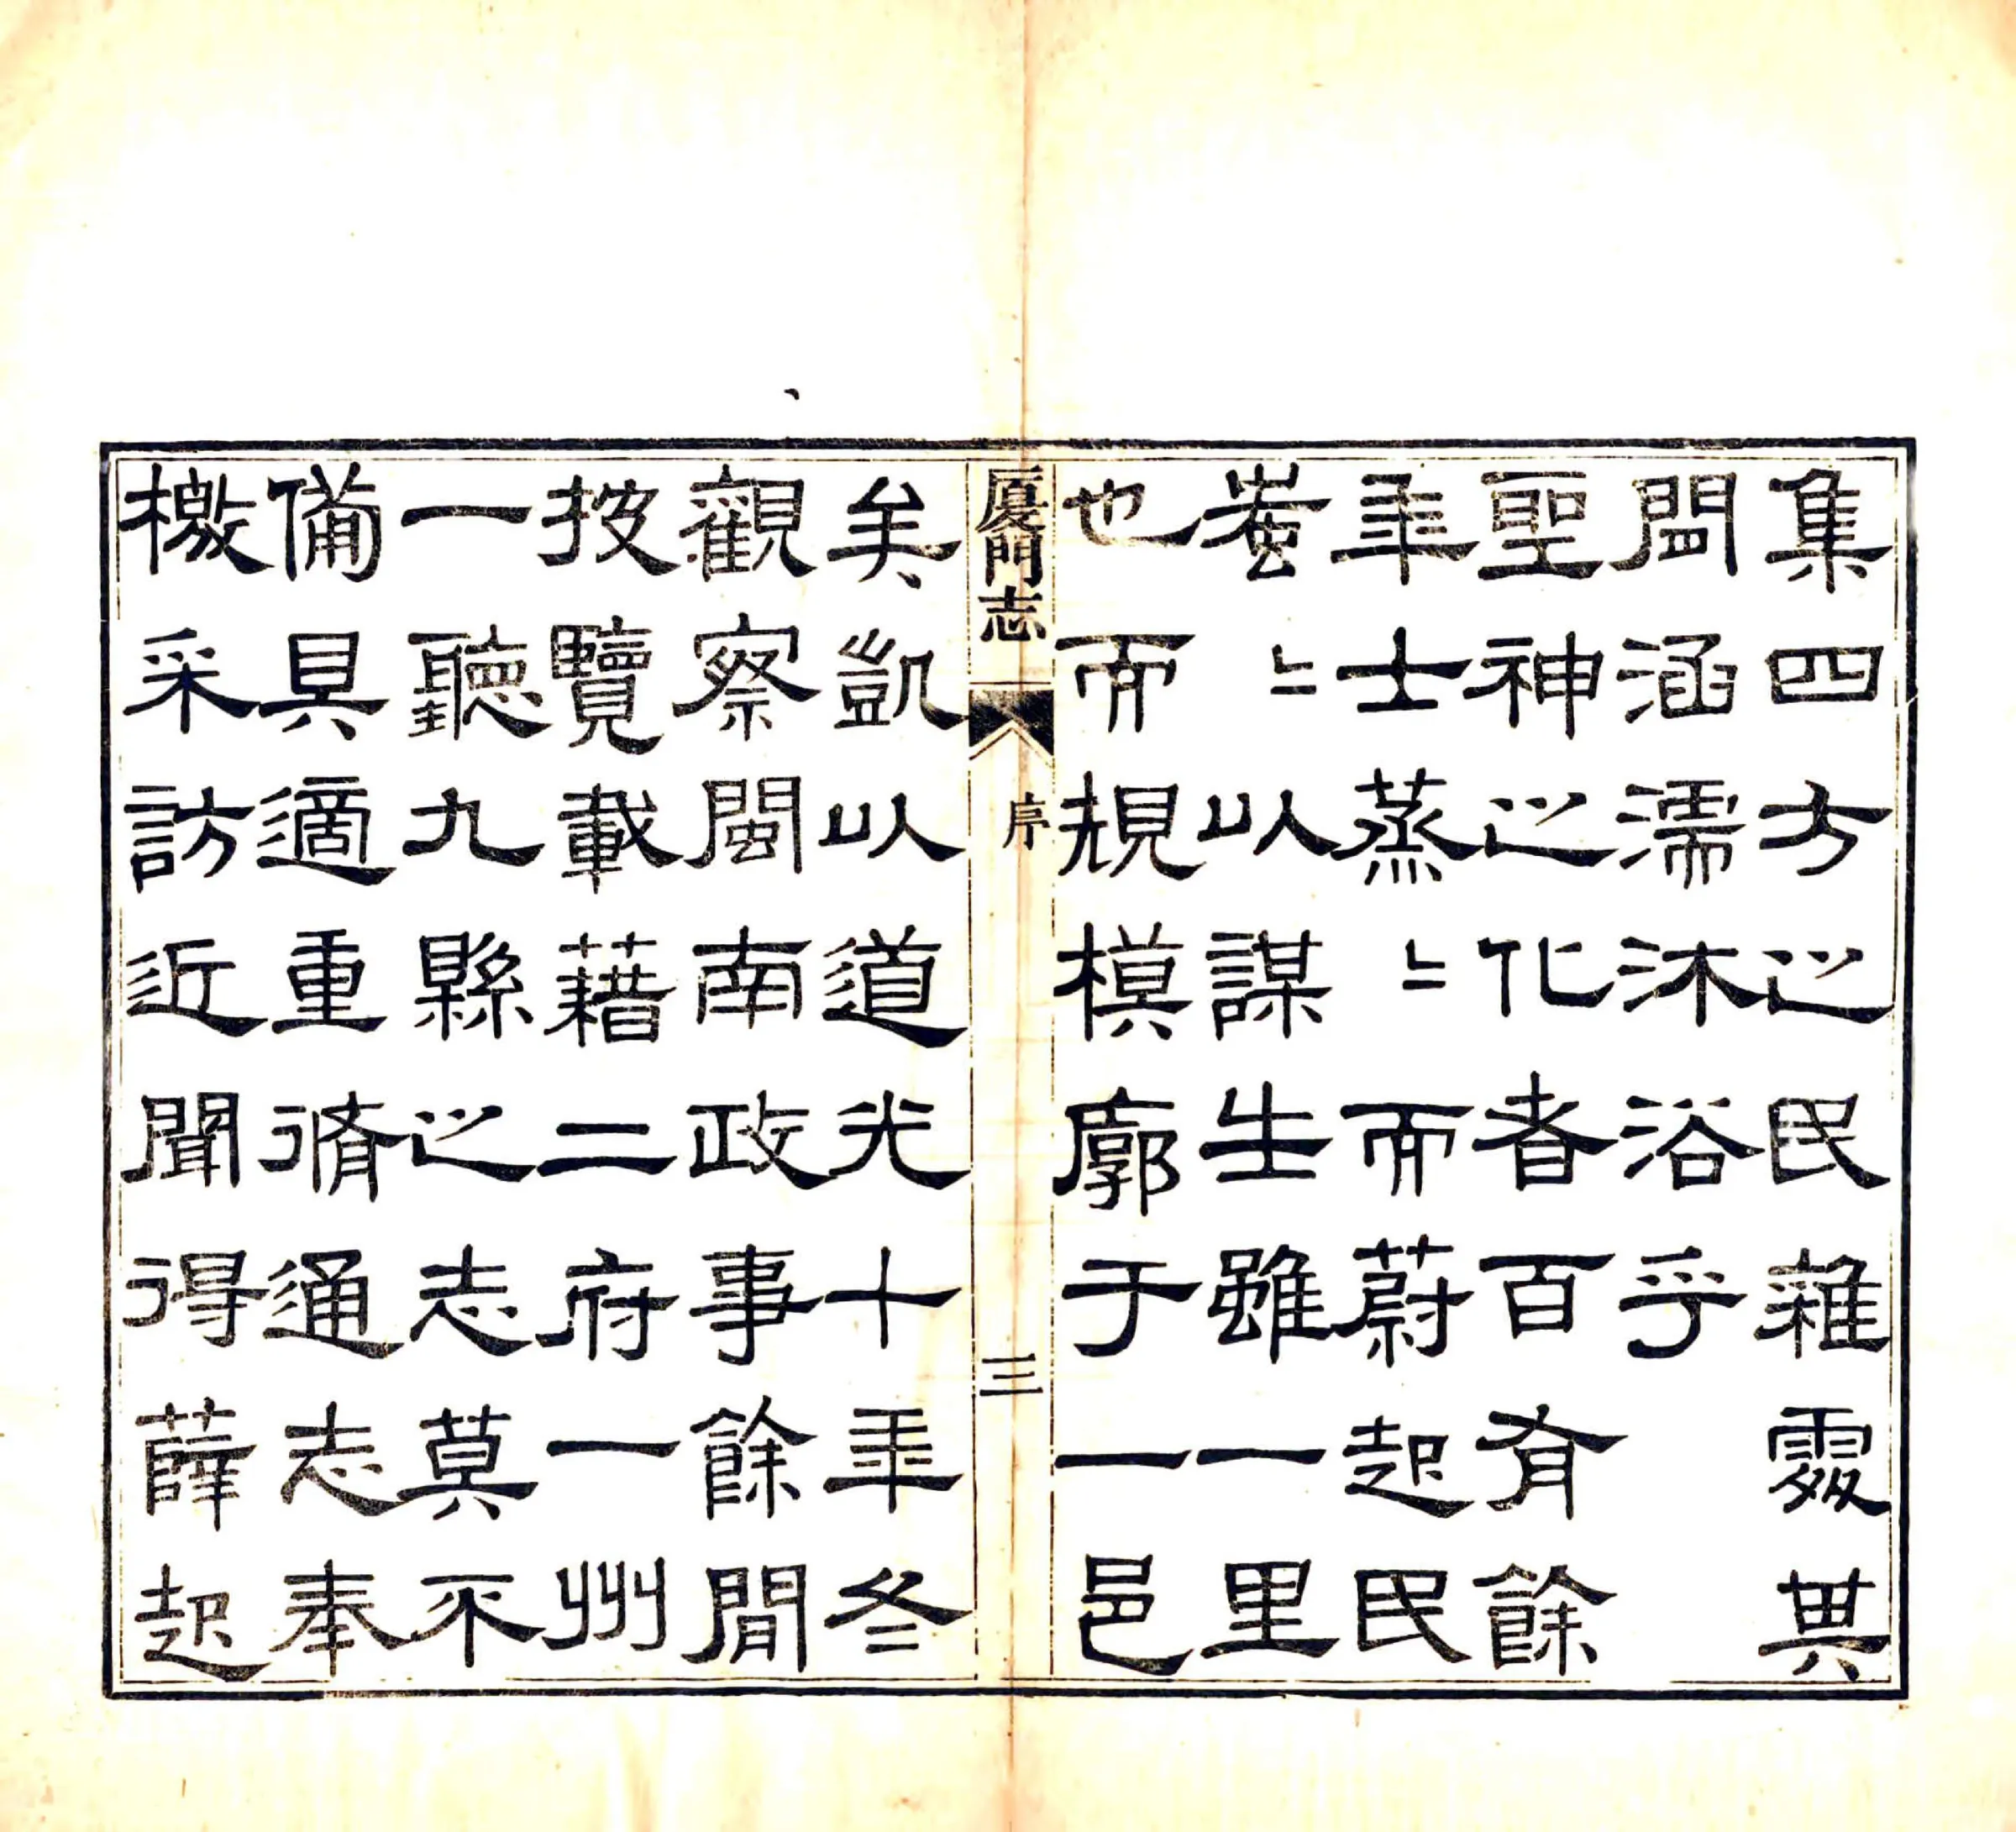 集四方之民雜處其
間涵濡沐浴乎
聖神之化者百有餘
年士蒸〻而蔚起民
蚩〻以謀生雖一里
也而規模廓于一邑
厦門志 序 三
矣凱以道光十年冬
觀察閩南政事餘閒
按覽載藉二府一州
一聽九縣之志莫不
備具適重脩通志奉
檄采訪近聞得薛起